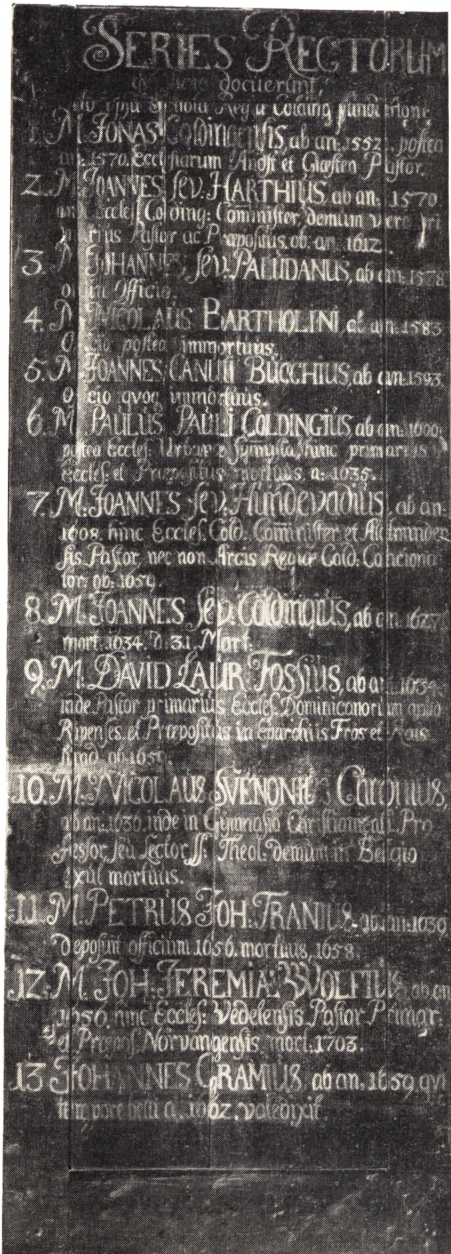 SERIES RECTORUM
docuerunt,
Colding
1. M. JONAS Coldingensis ab an. 1552. postea
an. 1570. Ecclesiarum Anst et Giesten Pastor.
2. M. JOANNES sev. HARTHIUS ab an. 1570
Eccles. Colding: Comminister demum vero pri
Pastor ac Præpositus. ob. an. 1612.
3. M. JOHANNES, sev. PALUDANUS, ab an: 1578
Officio.
4. M. NICOLAUS BARTHOLINI ab an: 1583
postea immortuus.
5. M. JOANNES CANUTI BUCCHIUS, ab an: 1593.
qvoq. immortuus.
6. M. PAULUS PAULI COLDINGIUS ab an: 1600.
postea Eccles: hinc primarius
Eccles: et Præpositus mortuus, a: 1635.
7. M. JOANNES sev. Hundevadius, ab an:
1608. hinc Eccles. Cold: Comminister et
sis Pastor, nec non Arcis Regiæ Cold: Conciona
tor. ob: 1659.
8. M. JOANNES sev: Coldingius, ab an: 1627
mort. 1634. d: 31. Mart:
9. M. DAVID LAUR FOSSIUS, ab an 1634.
inde Pastor primarius Eccles. Dominicanorum apud
Ripenses. et Præpositus in Fros et
ob
10. M. NICOLAUS SVENONIUS Chronius,
ab an. 1636. inde in Gymnasio Pro
fessor seu Lector SS: Theol: demum in Belgio
exul mortuus.
11. M. PETRUS JOH: TRANIUS. ab an: 1639
deposuit officium 1656. mortuus, 1658.
12. M. JOH. JEREMIÆ WOLFIUS, ab an
1656. hinc Eccles: Vedelensis Pastor Primar:
et Norvangensis mort. 1703.
13 JOHANNES GRAMIUS. ab an. 1659 qvi
tempore belli